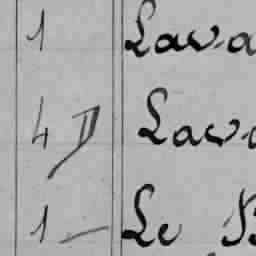 1 Lava
4 D Lava
1 — Le B